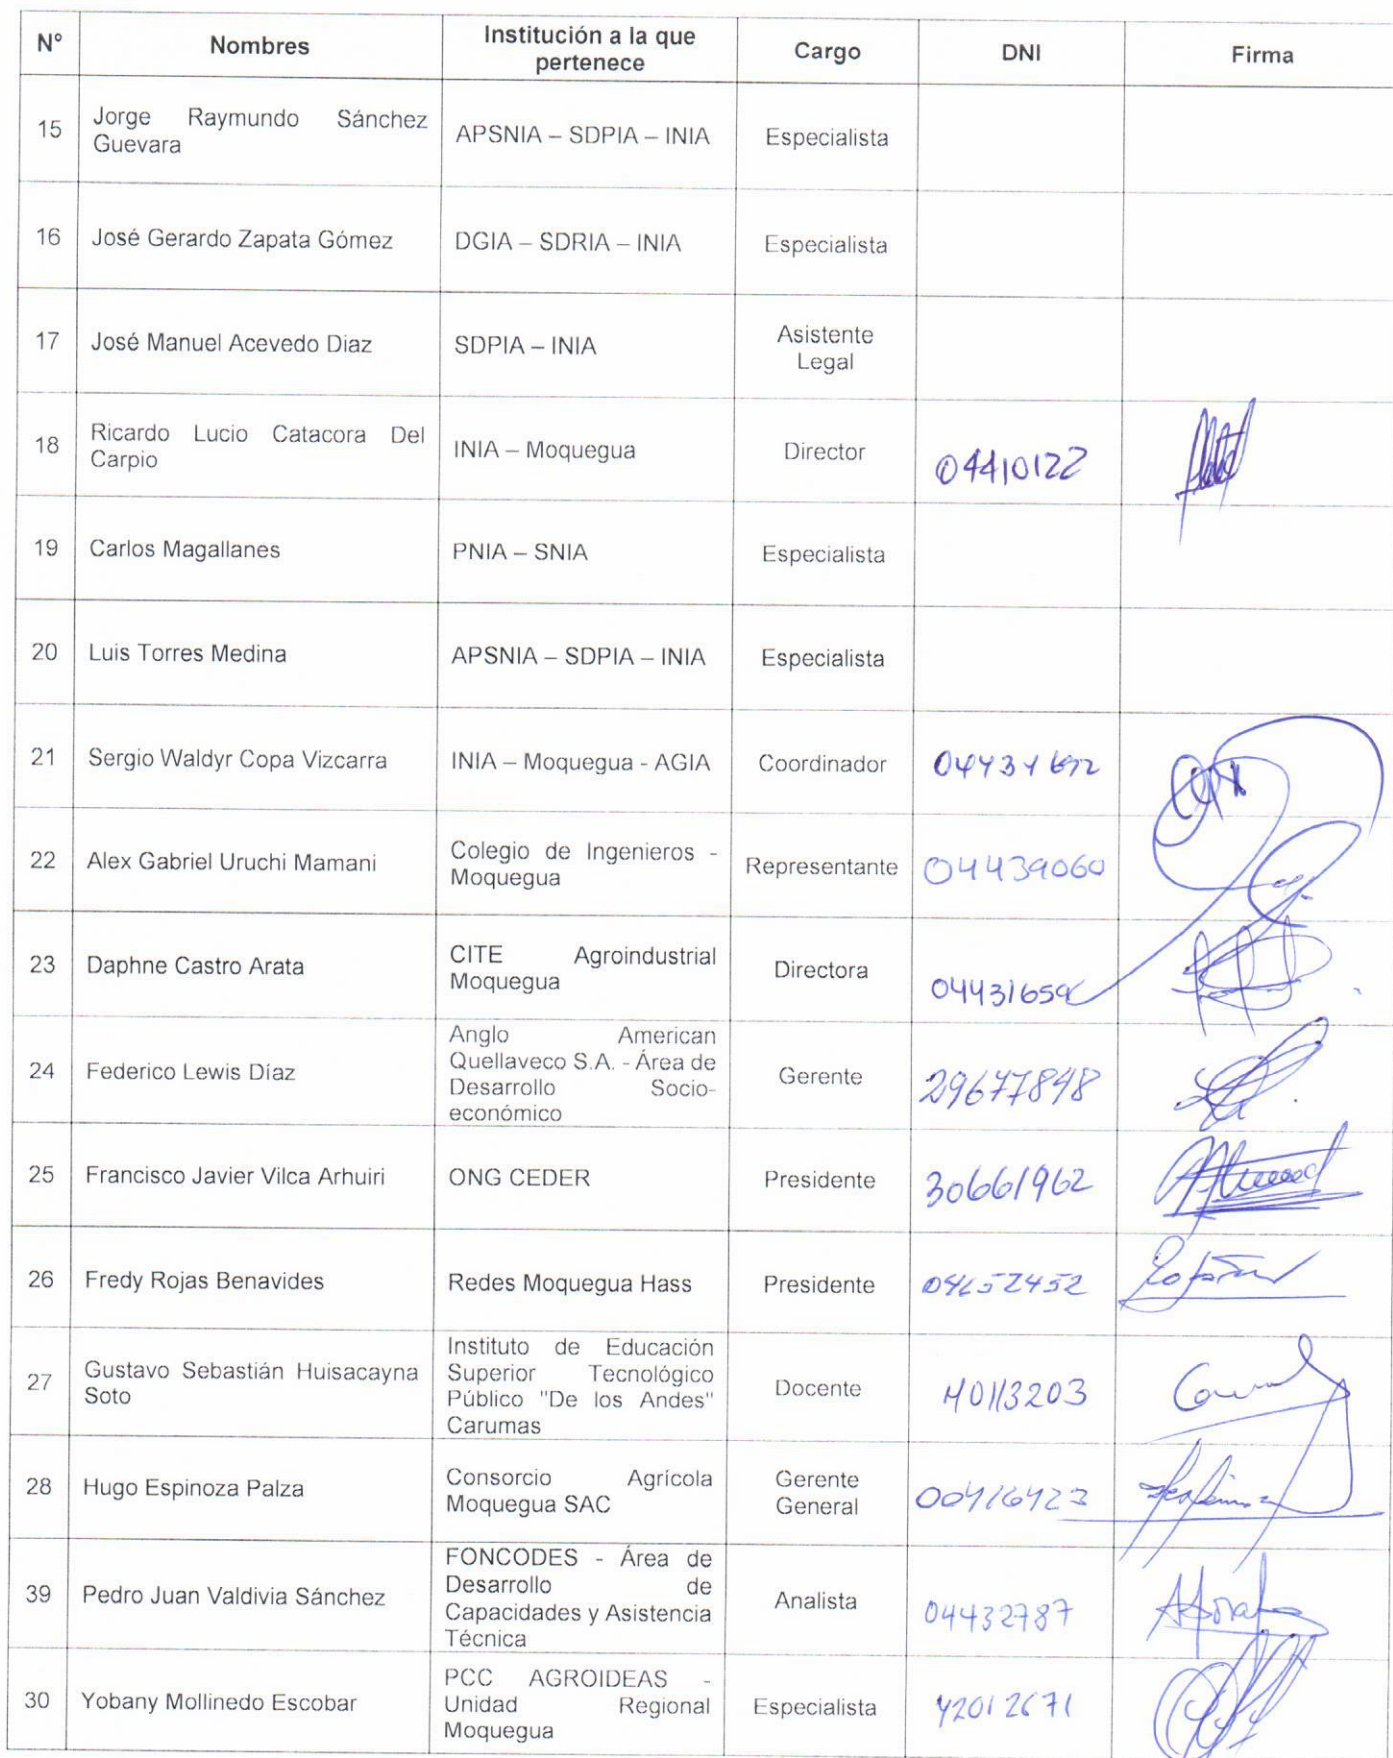 N° Nombres Institución a la que pertenece Cargo DNI Firma
15 Jorge Raymundo Sánchez Guevara APSNIA – SDPIA – INIA Especialista
16 José Gerardo Zapata Gómez DGIA – SDRIA – INIA Especialista
17 José Manuel Acevedo Diaz SDPIA – INIA Asistente Legal
18 Ricardo Lucio Catacora Del Carpio INIA – Moquegua Director 04410122
19 Carlos Magallanes PNIA – SNIA Especialista
20 Luis Torres Medina APSNIA – SDPIA – INIA Especialista
21 Sergio Waldyr Copa Vizcarra INIA – Moquegua - AGIA Coordinador
22 Alex Gabriel Uruchi Mamani Colegio de Ingenieros - Moquegua Representante 04439060
23 Daphne Castro Arata CITE Agroindustrial Moquegua Directora 04431659
24 Federico Lewis Díaz Anglo American Quellaveco S.A. - Área de Desarrollo Socio-económico Gerente 29677848
25 Francisco Javier Vilca Arhuiri ONG CEDER Presidente 30661962
26 Fredy Rojas Benavides Redes Moquegua Hass Presidente
27 Gustavo Sebastián Huisacayna Soto Instituto de Educación Superior Tecnológico Público "De los Andes" Carumas Docente 40113203
28 Hugo Espinoza Palza Consorcio Agrícola Moquegua SAC Gerente General 00416423
39 Pedro Juan Valdivia Sánchez FONCODES - Área de Desarrollo de Capacidades y Asistencia Técnica Analista 04432787
30 Yobany Mollinedo Escobar PCC AGROIDEAS - Unidad Regional Moquegua Especialista 42012671